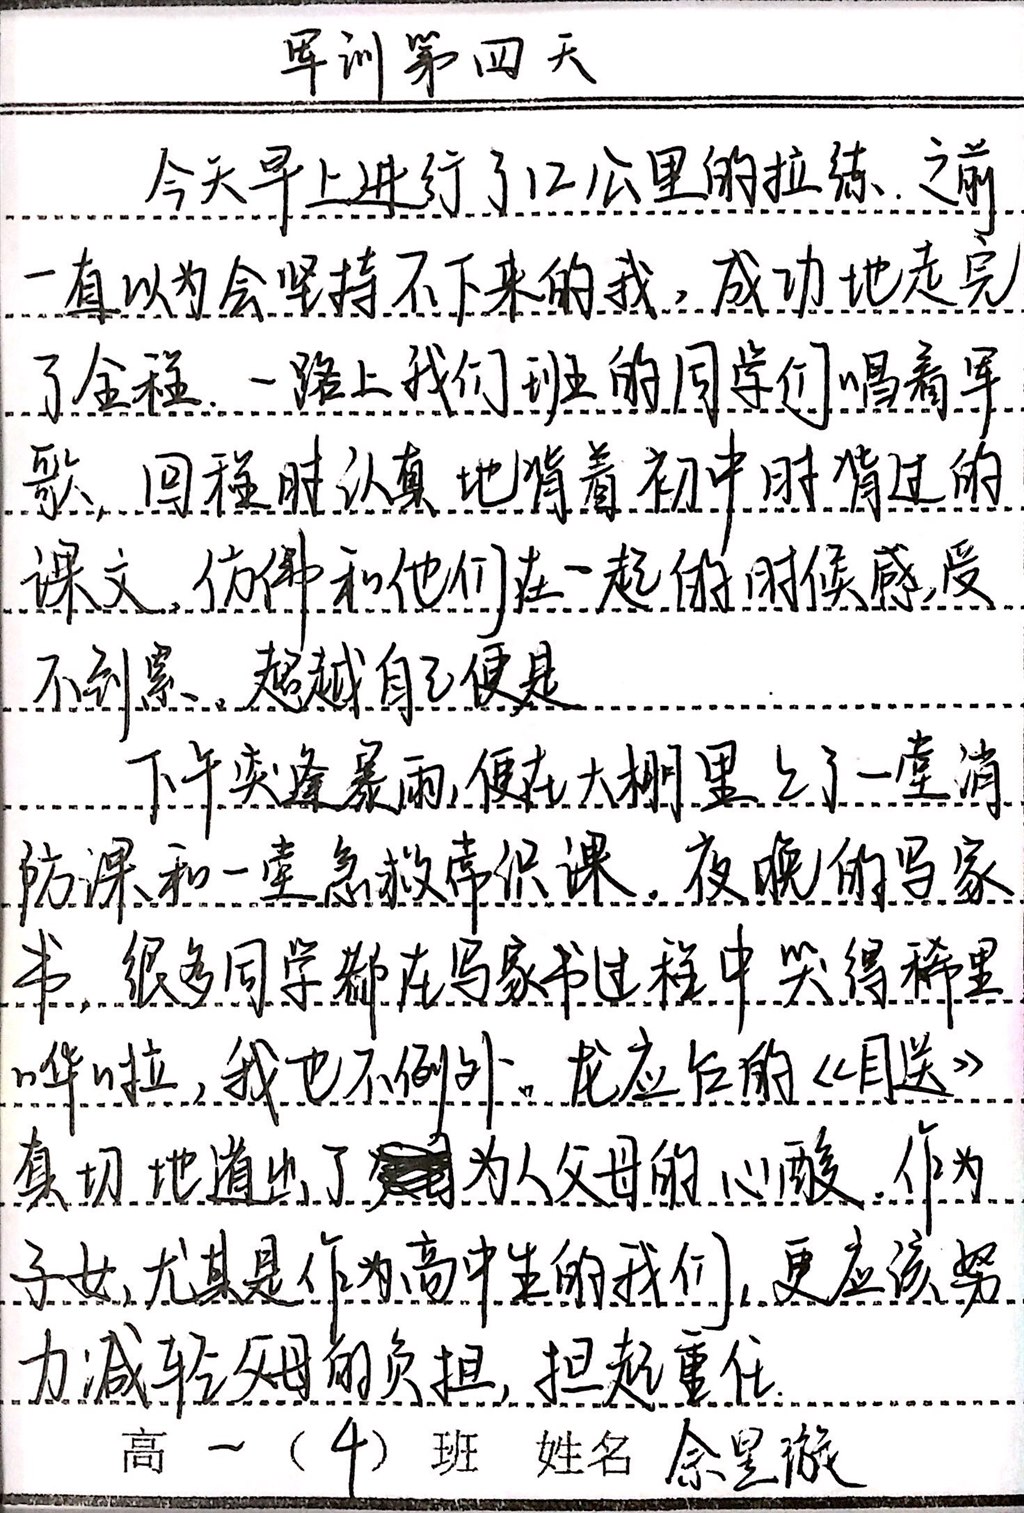 军训第四天
今天早上进行了12公里的拉练.之前
一直以为会坚持不下来的我,成功地走完
了全程.一路上我们班的同学们唱着军
歌,回程时认真地背着初中时背过的
课文,仿佛和他们在一起的时候感受
不到累。超越自己便是
下午突逢暴雨,便在大棚里上了一堂消
防课和一堂急救常识课.夜晚的写家
书,很多同学都在写家书过程中哭得稀里
哗啦,我也不例外。龙应台的《目送》
真切地道出了为人父母的心酸.作为
子女,尤其是作为高中生的我们,更应该努
力减轻父母的负担,担起重任.
高一(4)班 姓名 余星璇